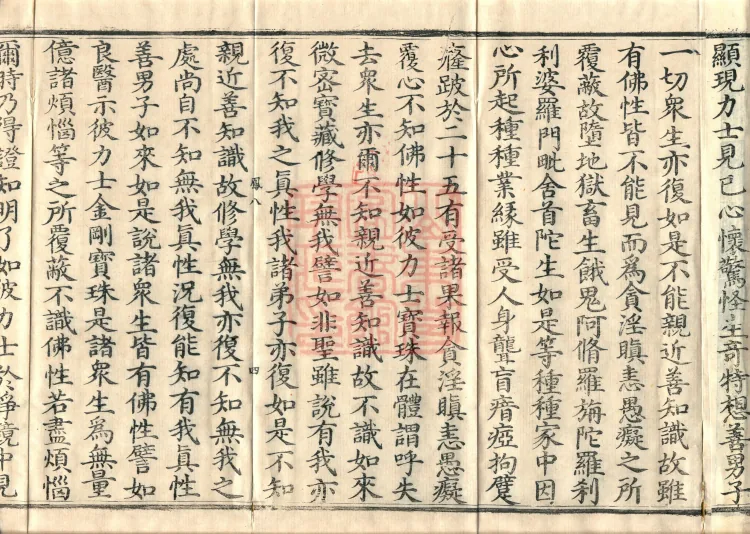 顯現力士見已心懷驚怪生奇特想善男子
一切衆生亦復如是不能親近善知識故雖
有佛性皆不能見而爲貪淫瞋恚愚癡之所
覆蔽故墮地獄畜生餓鬼阿脩羅旃陀羅刹
利婆羅門毗舍首陀生如是等種種家中因
心所起種種業緣雖受人身聾盲瘖瘂拘躄
癃跛於二十五有受諸果報貪淫瞋恚愚癡
覆心不知佛性如彼力士寶珠在體謂呼失
去衆生亦爾不知親近善知識故不識如來
微密寶藏修學無我譬如非聖雖說有我亦
復不知我之眞性我諸弟子亦復如是不知
鳳八 四
親近善知識故修學無我亦復不知無我之
處尚自不知無我眞性況復能知有我眞性
善男子如來如是說諸衆生皆有佛性譬如
良醫示彼力士金剛寶珠是諸衆生爲無量
億諸煩惱等之所覆蔽不識佛性若盡煩惱
爾時乃得證知明了如彼力士於淨鏡中見